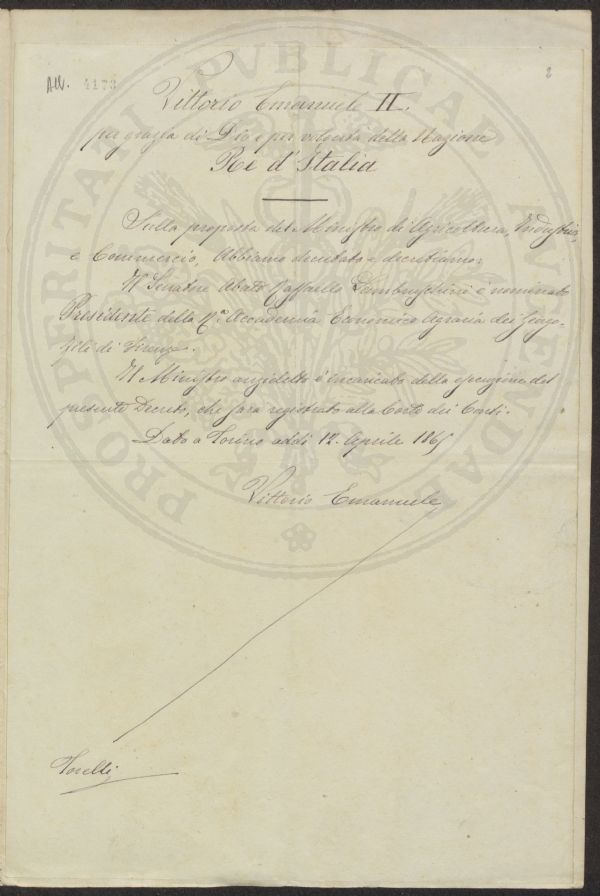 All. 4173
2
Vittorio Emanuele II.
per grazia di Dio e per volontà della Nazione
Re d'Italia
Sulla proposta del Ministro di Agricoltura, Industria,
e Commercio, Abbiamo decretato e decretiamo:
Il Senatore Abate Raffaello Lambruschini è nominato
Presidente della Rª. Accademia Economico Agraria dei Georgo-
fili di Firenze.
Il Ministro anzidetto è incaricato della esecuzione del
presente Decreto, che sarà registrato alla Corte dei Conti.
Dato a Torino addì 12. Aprile 1865
Vittorio Emanuele
Torelli
PROSPERITATI PUBLICAE AUGENDAE